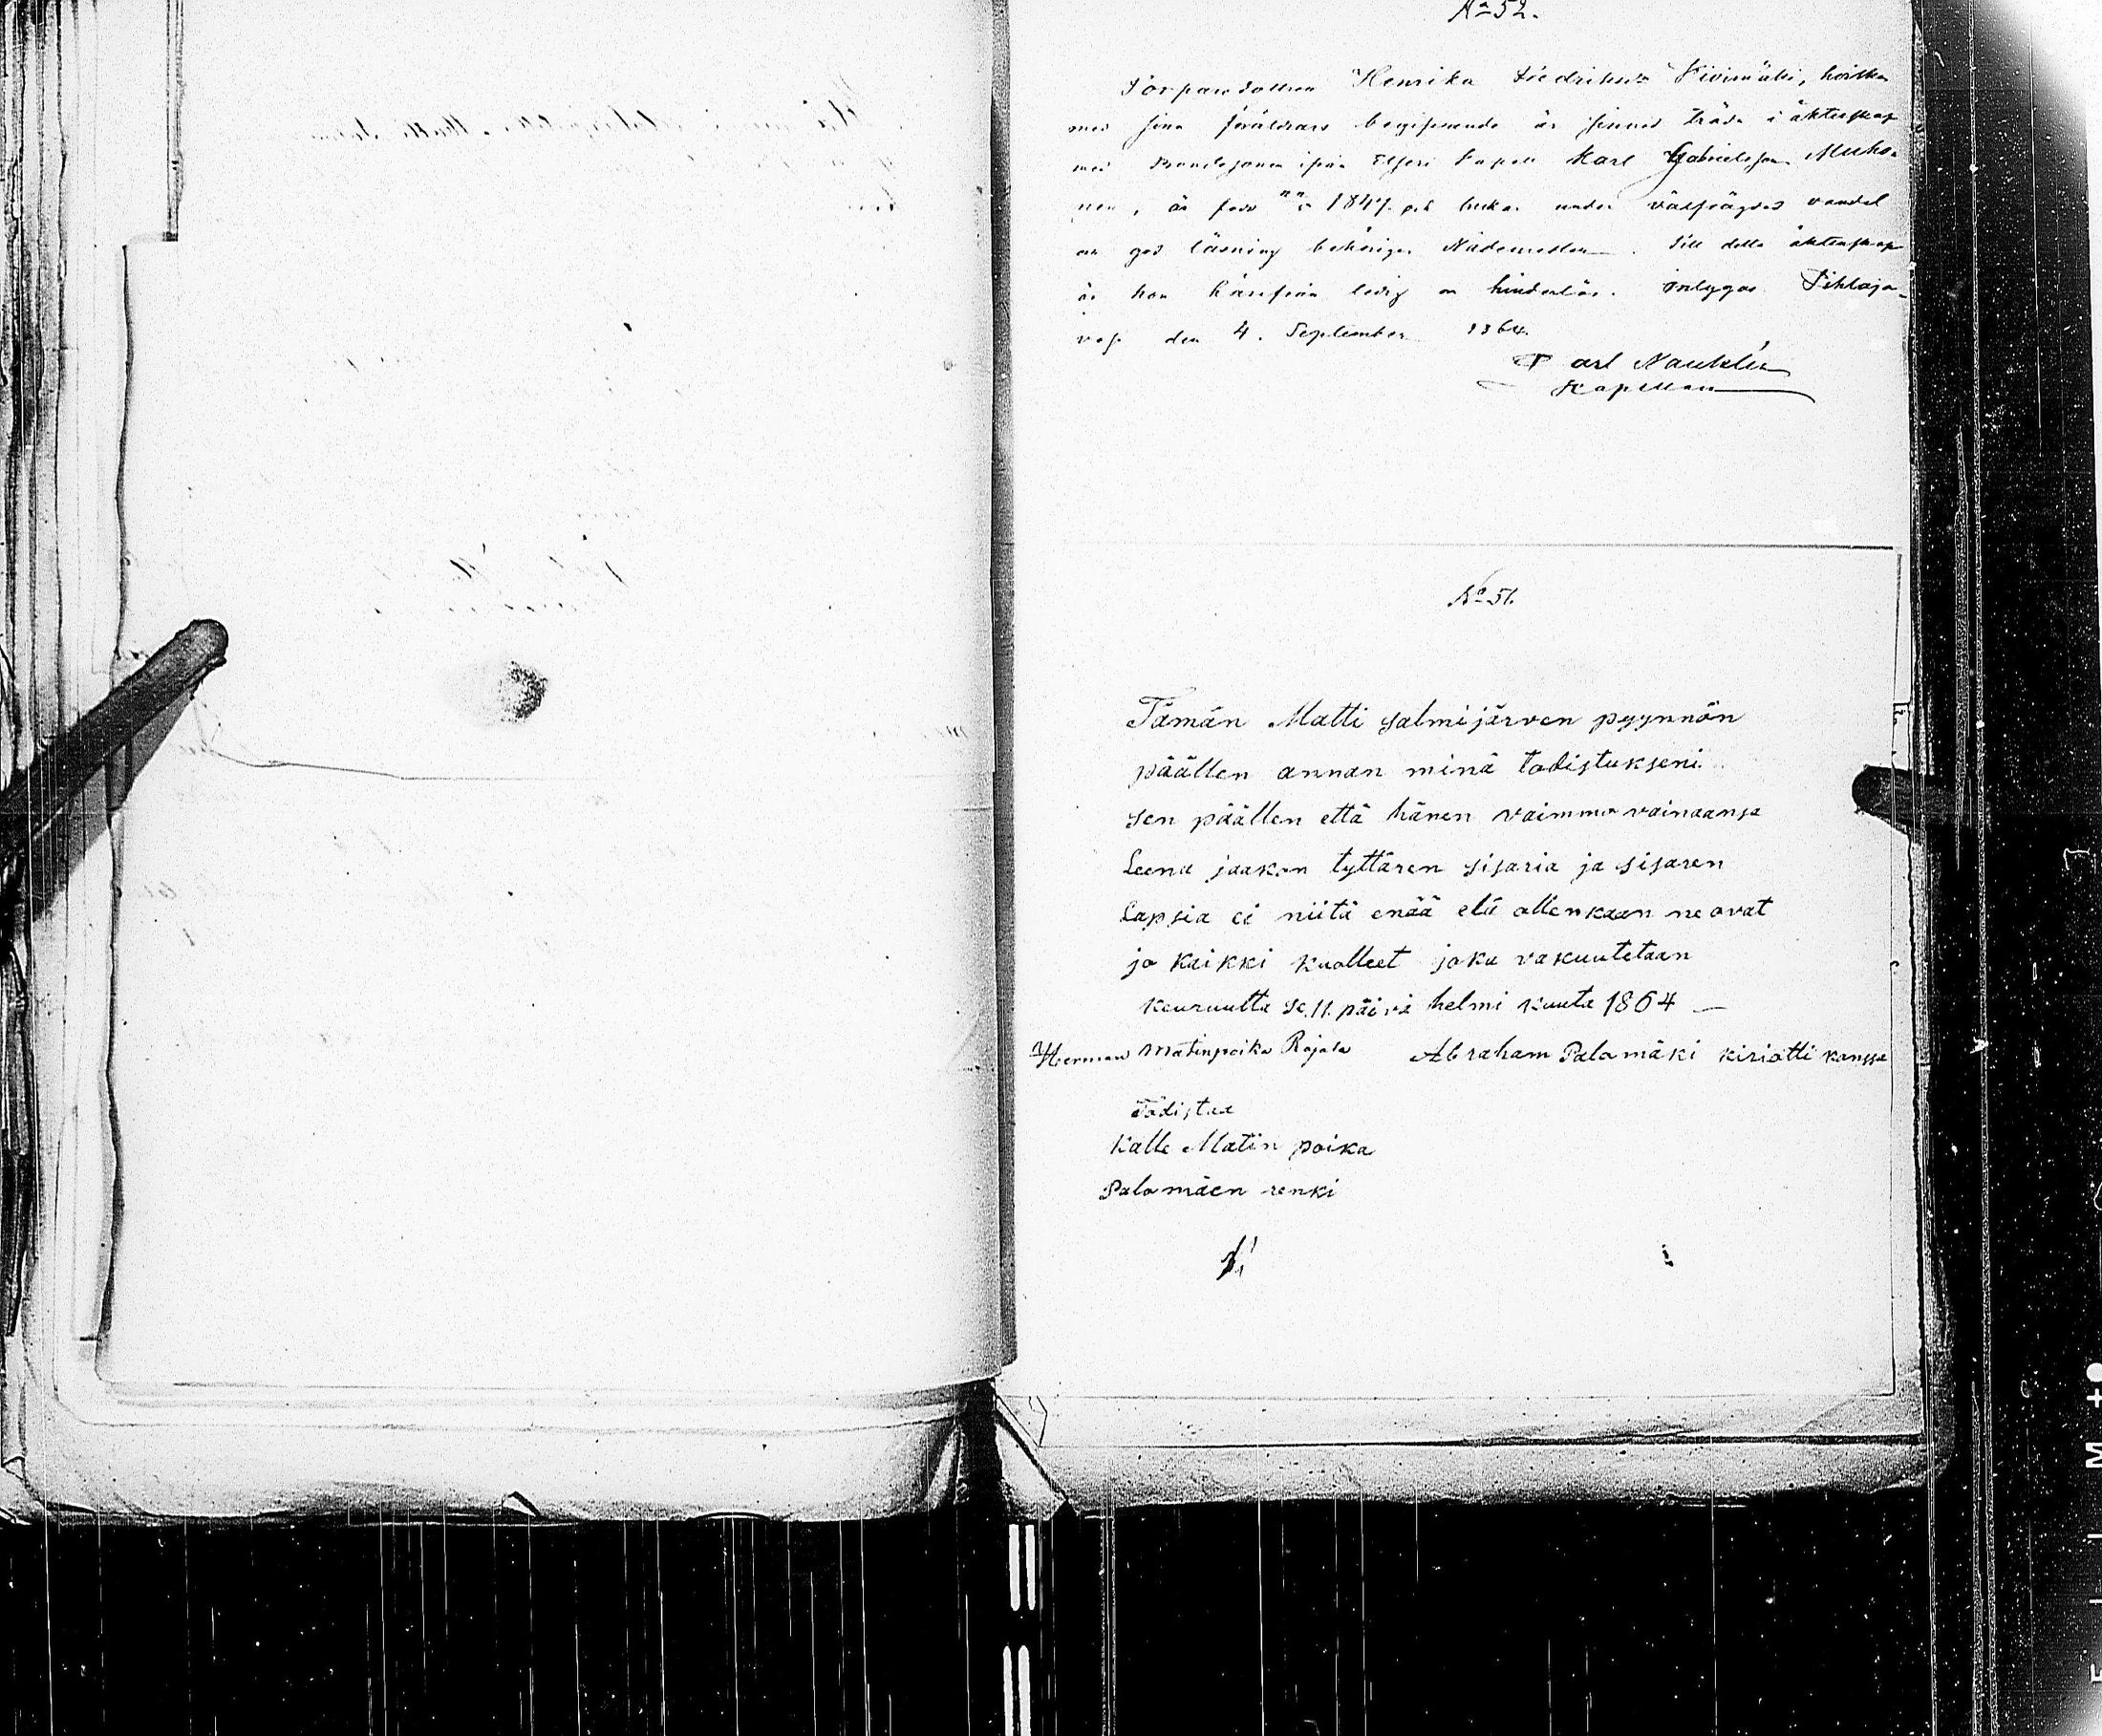 No 52.
Torparedottren Henrika Fredriksdr Kivimäki, hvilken
med sina föräldrars begifvande är sinnad träda i äktenskap
med Bondesonen ifrån Etseri Kapell Karl Gabrielsson Muho-
nen, är född 1847 och brukar under välfrägdad vandel
en god läsning behöriga Nådemedlen. Till detta äktenskap
är hon härifrån ledig en hinderlös. Intygas Pihlaja-
vesi den 4. September 1864.
Carl Nauklér
Kapellan
No 51.
Tämän Matti salmijärven pyynnön
päällen annan minä todistukseni
sen päällen että hänen vaimmo vainaansa
Leena jaakon tyttären sisaria ja sisaren
Lapsia ei niitä enää elä ollenkaan ne ovat
jo kaikki kuolleet joka vakuutetaan
keuruulta se. 11. päivä helmi kuuta 1864 —
Herman Matinpoika Rajala Abraham Palomäki kiriotti kanssa
Todistaa
Kalle Matin poika
Palomäen renki